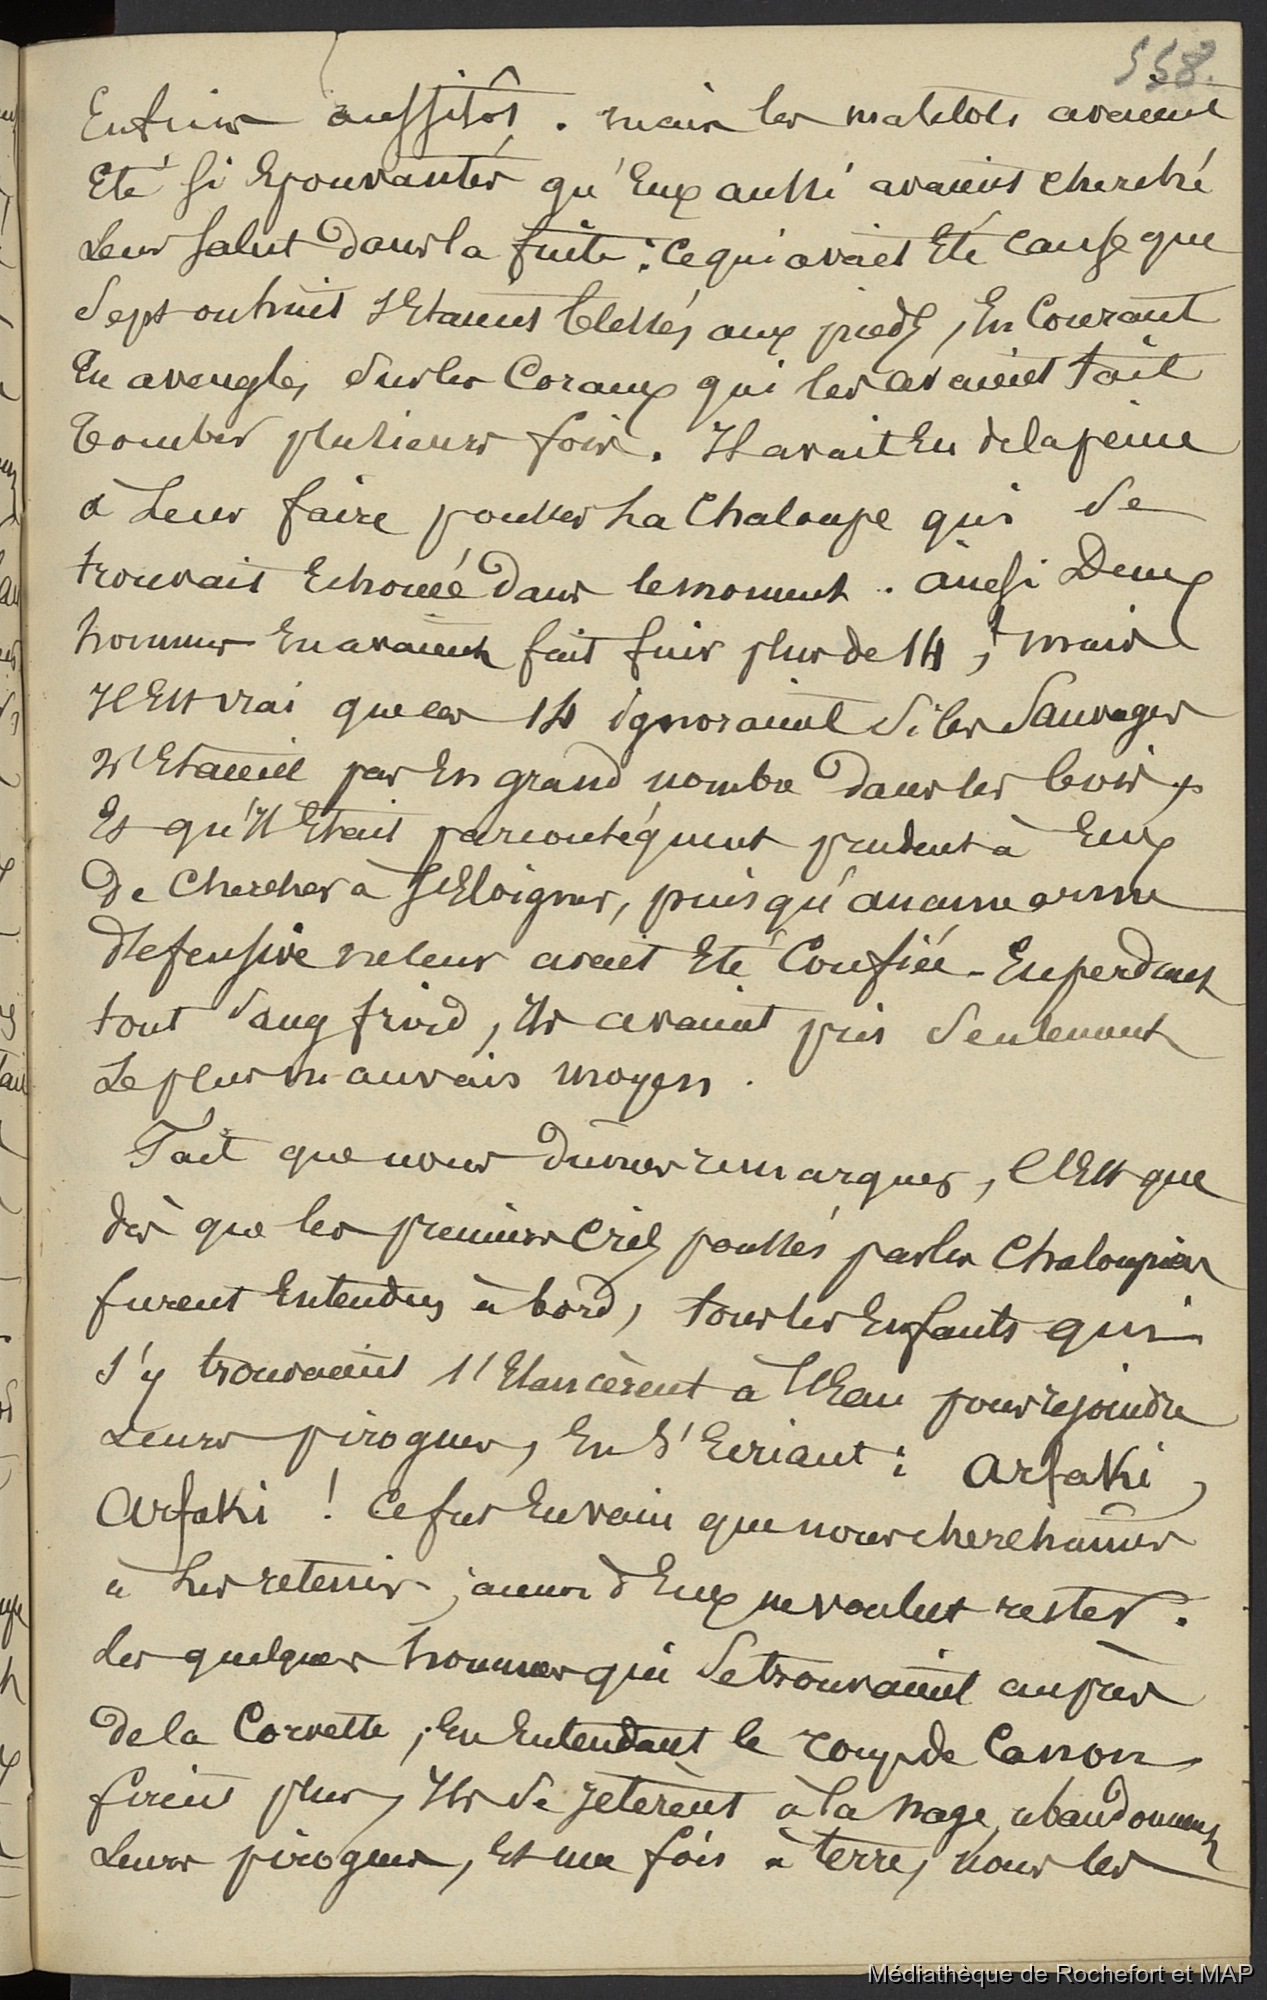 558.
Enfuir aussitôt . mais les matelots avaient
Eté si Epouvantés qu'Eux aussi avaient cherché
Leur salut dans la fuite : ce qui avait Eté cause que
Sept ou huit s'Etaient blessés aux pieds, En Courant
En aveugles, sur les Coraux qui les avaient fait
tomber plusieurs fois . Il avait Eu de la peine
à Leur faire pousser La Chaloupe qui Se
trouvait Echouée dans le moment . ainsi Deux
hommes En avaient fait fuir plus de 14 ; mais
Il Est vrai que ces 14 ignoraient Si les Sauvages
n'Etaient pas En grand nombre dans les bois,
Et qu'Il Etait par conséquent prudent à Eux
De Chercher à s'Eloigner, puisqu'aucune arme
défensive ne leur avait Eté Confiée - En perdant
tout Sang froid, Ils avaient pris Seulement
Le plus mauvais moyen .
Fait que nous dûmes remarquer, C'Est que
dès que les premiers Cris poussés par les Chaloupiers
furent Entendus à bord, tous les Enfants qui
s'y trouvaient s'Elancèrent à l'Eau pour rejoindre
Leurs pirogues, En S'Ecriant : Arfaki,
Arfaki ! Ce fut En vain que nous cherchâmes
à Les retenir ; aucun d'Eux ne voulut rester .
Les quelques hommes qui Se trouvaient auprès
De la Corvette ; En Entendant le coup de Canon,
firent plus, Ils Se jetèrent à la nage, abandonnant
Leurs pirogues, Et une fois à terre, nous les
Médiathèque de Rochefort et MAP